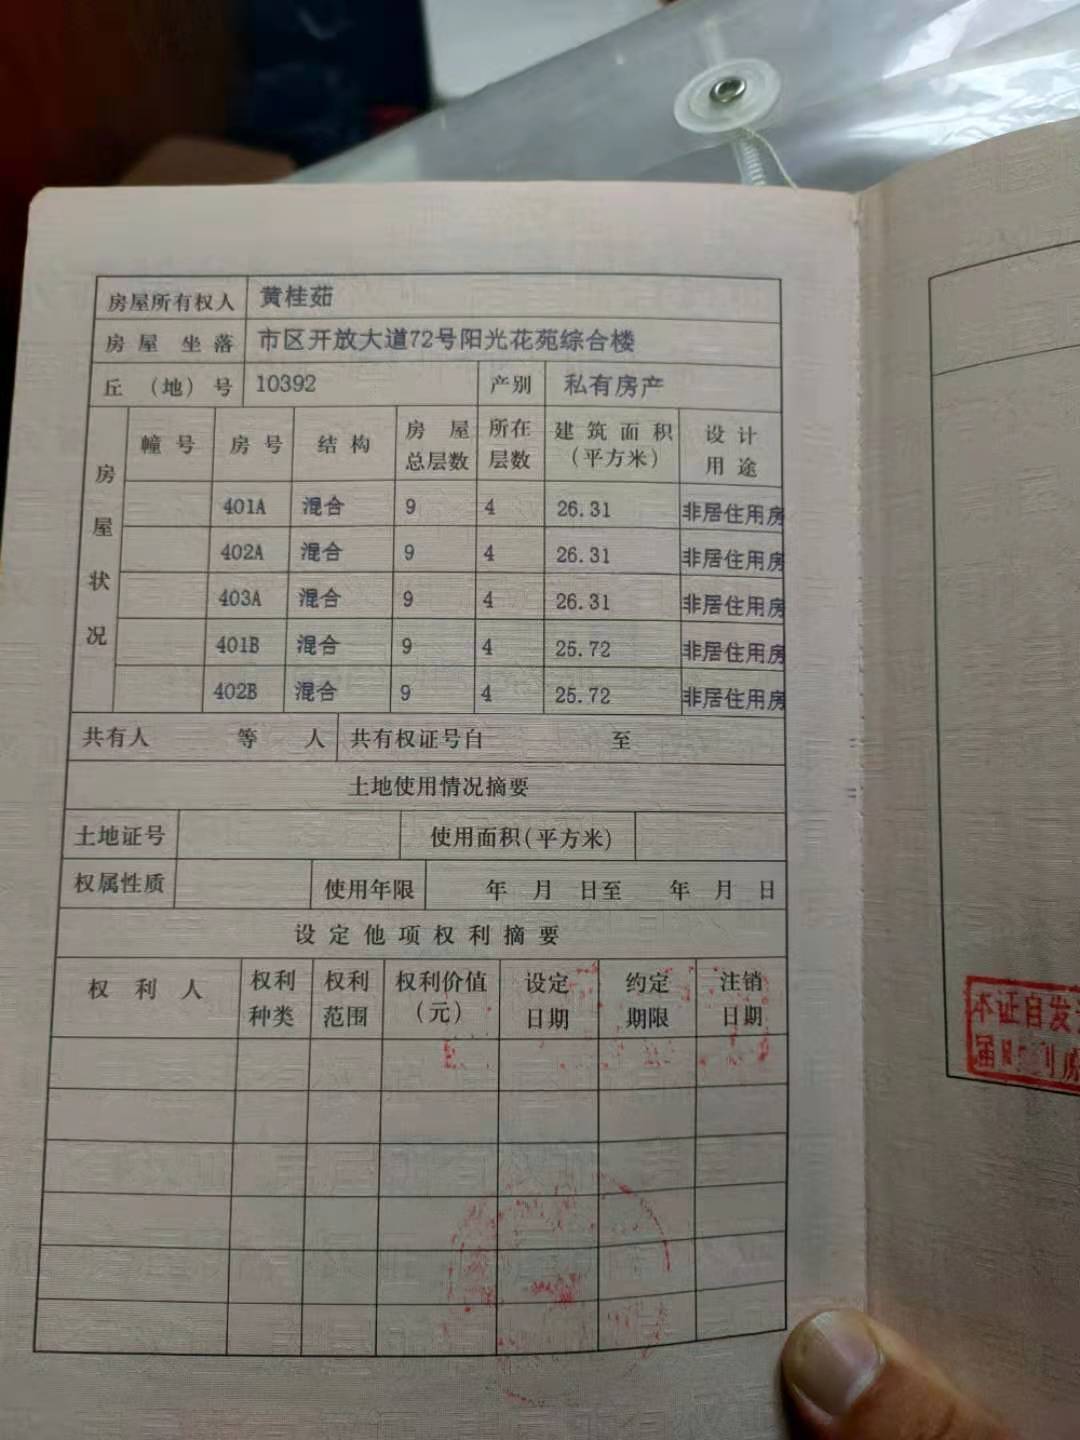 房屋所有权人 黄桂茹
房屋坐落 市区开放大道72号阳光花苑综合楼
丘(地)号 10392 产别 私有房产
房屋状况 幢号 房号 结构 房屋总层数 所在层数 建筑面积(平方米) 设计用途
401A 混合 9 4 26.31 非居住用房
402A 混合 9 4 26.31 非居住用房
403A 混合 9 4 26.31 非居住用房
401B 混合 9 4 25.72 非居住用房
402B 混合 9 4 25.72 非居住用房
共有人 等 人 共有权证号自 至
土地使用情况摘要
土地证号 使用面积(平方米)
权属性质 使用年限 年 月 日至 年 月 日
设定他项权利摘要
权利人 权利种类 权利范围 权利价值(元) 设定日期 约定期限 注销日期
本证自发